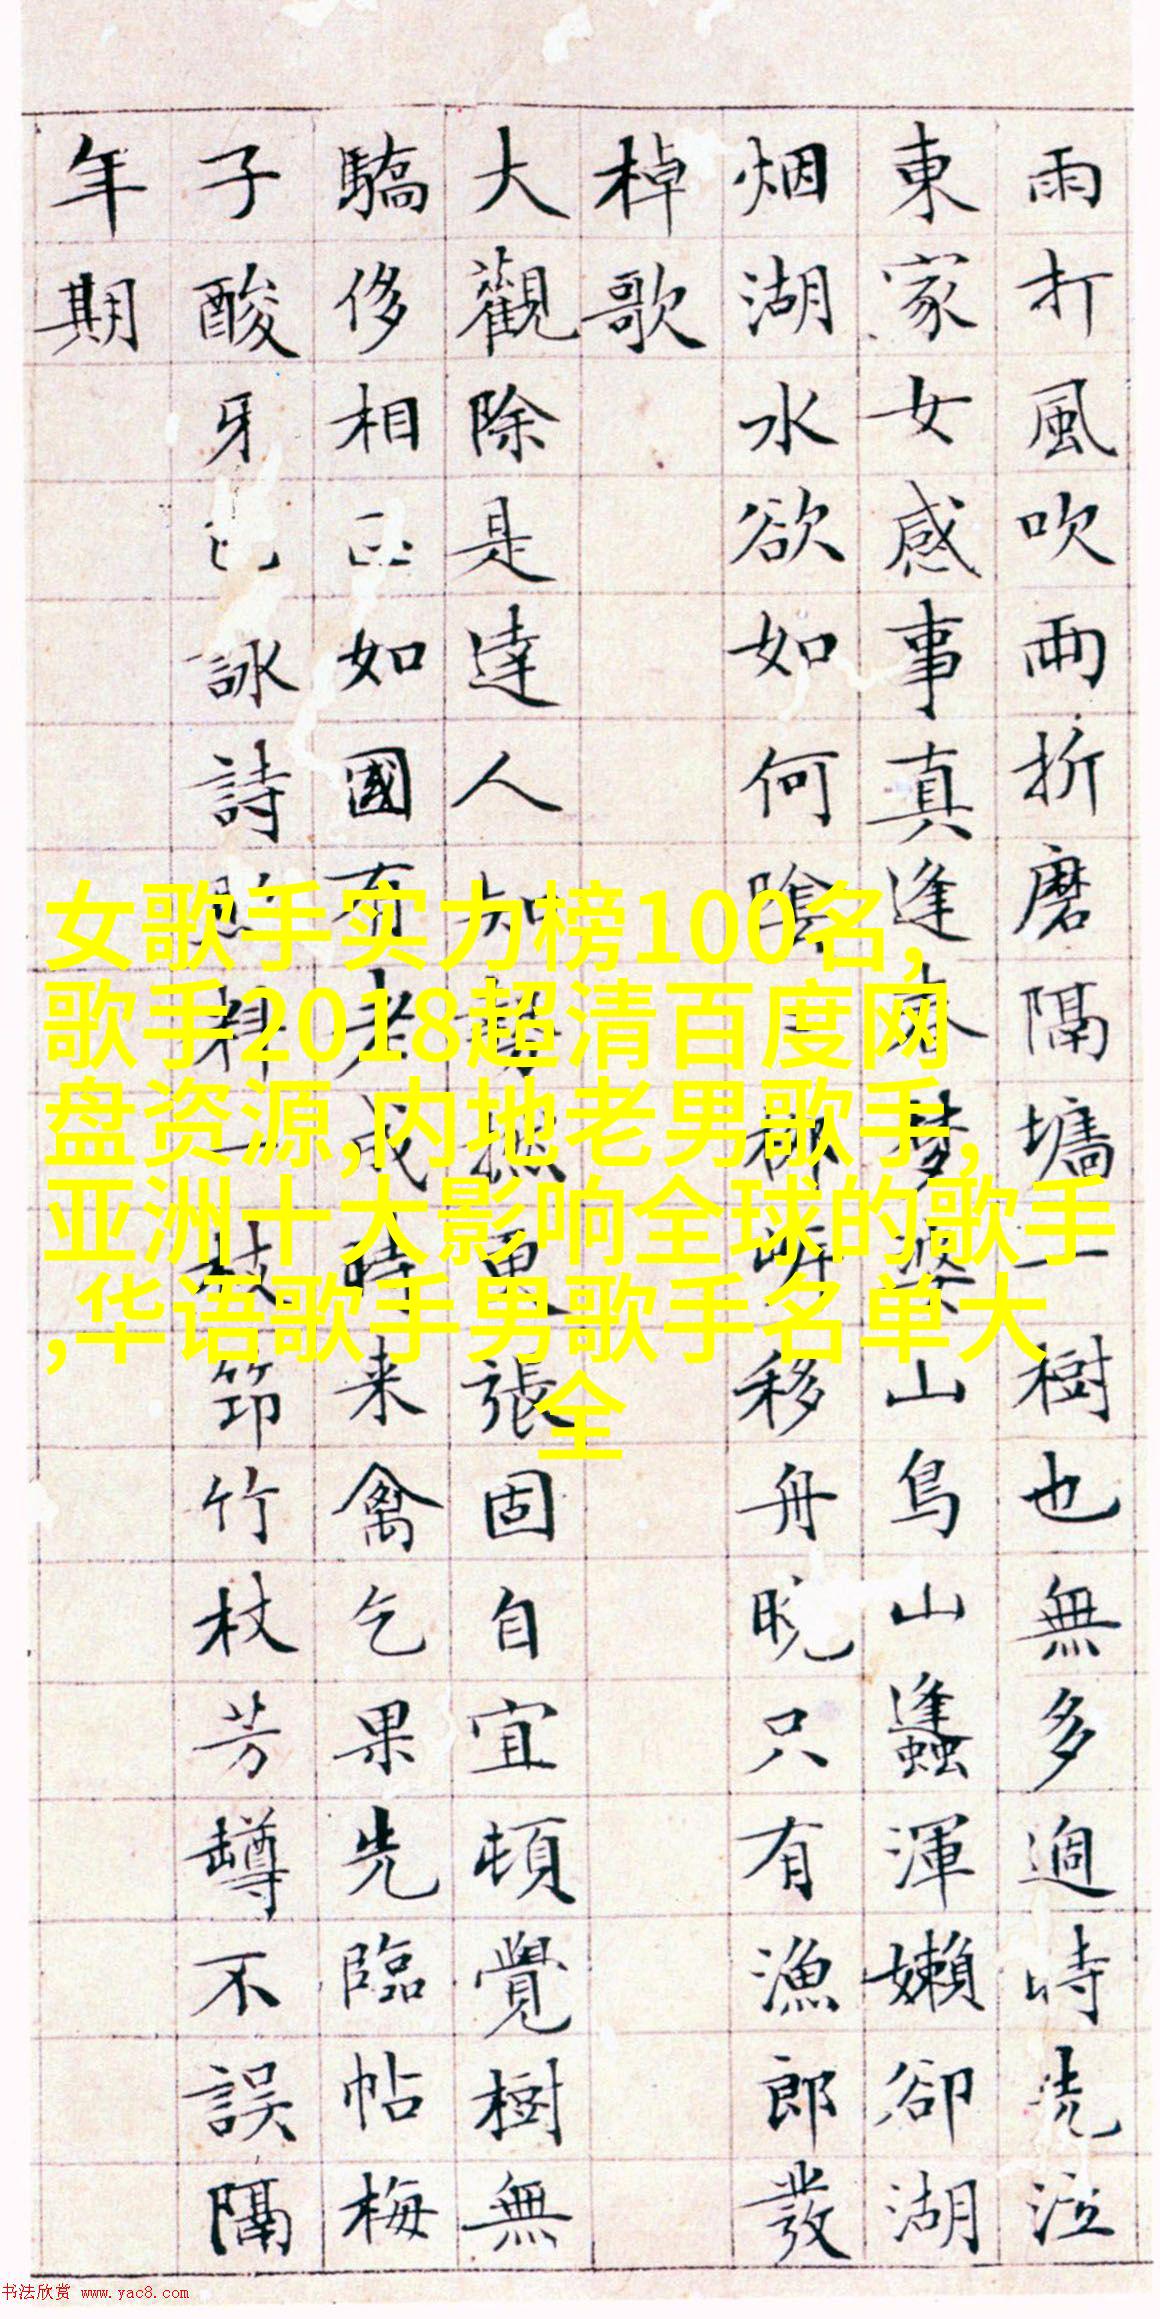 雨打風吹両折磨隔墻一樹也無多過時泣
東家女感事真逢春夢婆山鳥山蠭渾嬾卻湖
烟湖水欲如何陰移舟晚只有漁郎發
棹歌
大觀除是達人知張固自宜頓覺樹無
驕侈相如國有老成時来禽乞果先臨帖梅
子酸牙詠詩料一枝笻竹杖芳罇不誤隔
年期
女歌手实力榜100名,
歌手2018超清百度网
盘资源,内地老男歌手,
亚洲十大影响全球的歌手
,华语歌手男歌手名单大
全
书法欣赏 www.yac8.com